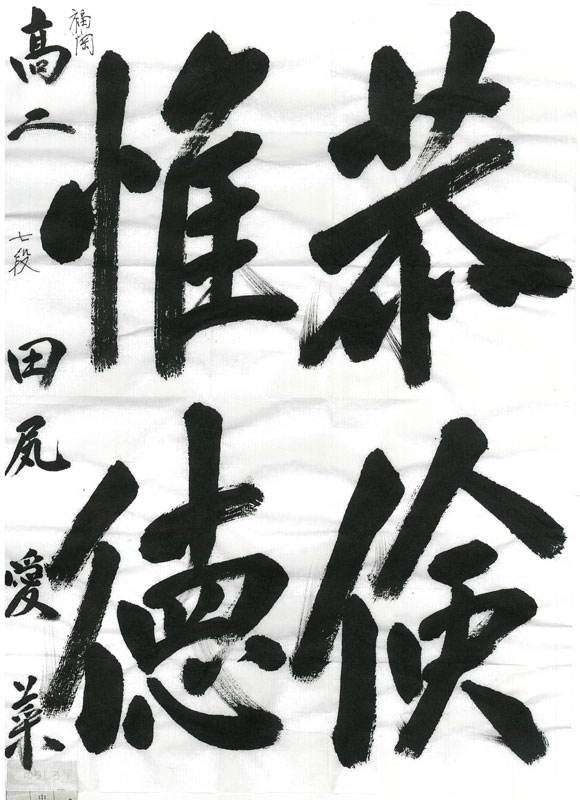 恭倹
惟徳
福岡
高二 七段 田尻愛菜